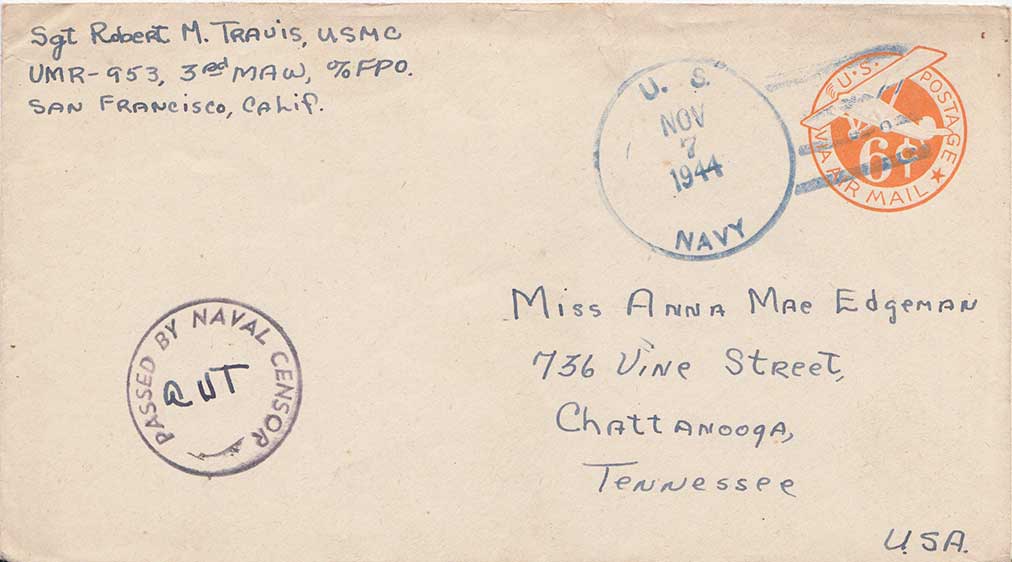 Sgt Robert M. Travis, USMC
UMR-953, 3rd MAW, % FPO.
San Francisco, Calif.
U. S.
NOV
7
1944
NAVY
U.S. POSTAGE
6¢
VIA AIR MAIL
Miss Anna Mae Edgeman
736 Vine Street,
Chattanooga,
Tennessee
USA.
PASSED BY NAVAL CENSOR